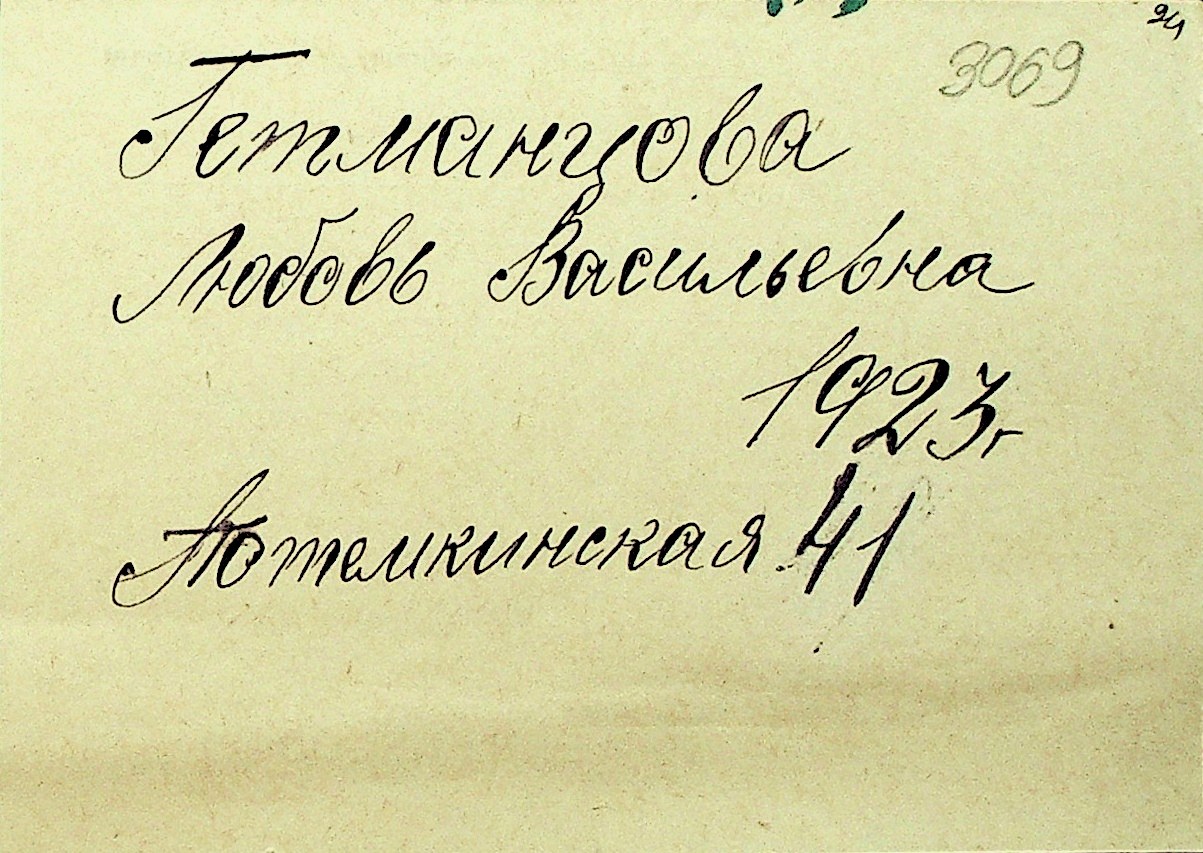 24
3069
Гетманцова
Любовь Васильевна
1923г
Потемкинская 41